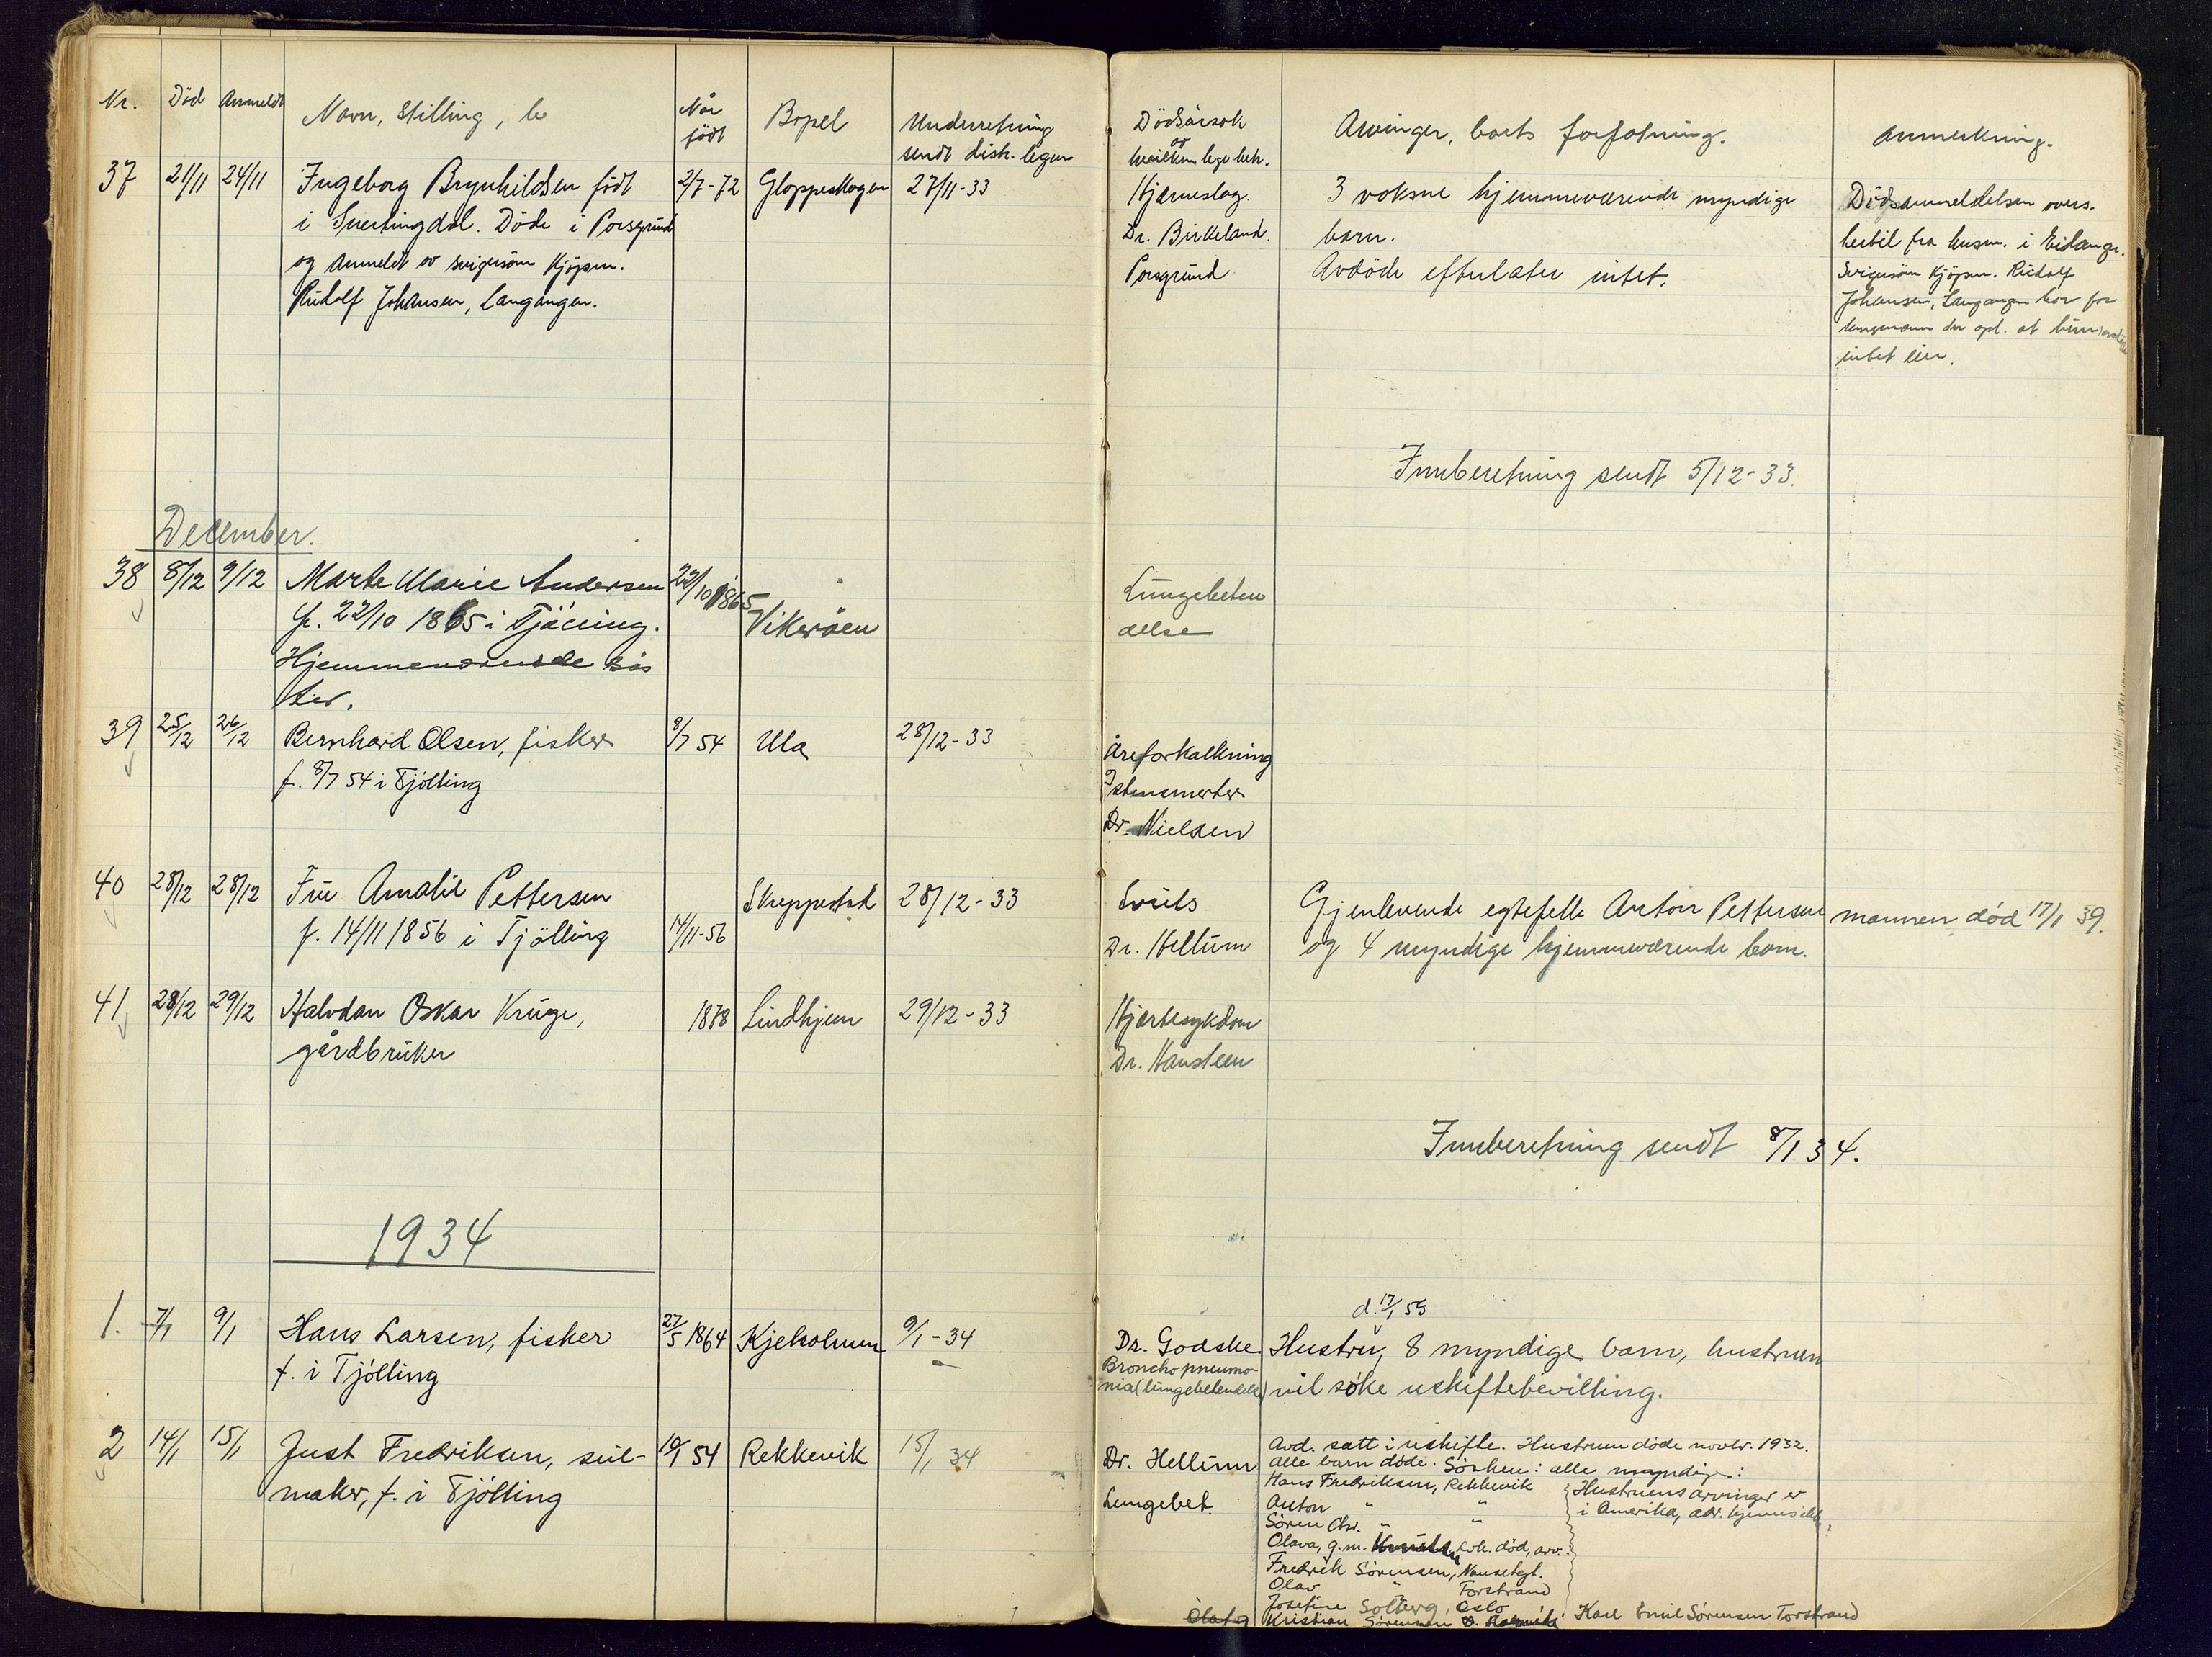 Nr. Död Anmeldt Navn, stilling, Når födt Bopel Underretning sendt distr. legen
Dödsårsak og hvilken lege beh. Arvinger, boets forfatning. Anmerkning.
37 21/11 24/11 Ingeborg Brynhildsen födt 2/7-72 Gloppeskogen 27/11-33
i Snertingdal. Döde i Porsgrund
og anmeldt av svigersøn Kjöpm.
Rudolf Johansen, Langangen.
Hjerneslag.
Dr. Birkeland.
Porsgrund
3 voksne hjemmeværende myndige
barn.
Avdöde efterlater intet.
Dödsanmeldelsen overs.
hertil fra lensm. i Eidanger.
Svigersön Kjöpm. Rudolf
Johansen, Langangen har for
lensmann der opl. at hun
intet eier.
Innberetning sendt 5/12-33.
December.
38 8/12 9/12 Marte Marie Andersen 22/10 1865 Vikerøen
f. 22/10 1865 i Tjölling.
Hjemmeværende søs
ter.
Lungebeten
delse
39 25/12 26/12 Bernhard Olsen, fisker 8/7 54 Ula 28/12-33
f. 8/7 54 i Tjölling
Åreforkalkning
Dr. Nielsen
40 28/12 28/12 Fru Amalie Pettersen Skreppestad 28/12-33
f. 14/11 1856 i Tjölling 14/11-56
Dr. Hellum
Gjenlevende egtefelle Anton Pettersen
og 4 myndige hjemmeværende barn.
mannen død 17/1 39.
41 28/12 29/12 Halvdan Oskar Kruge, 1878 Lindhjem 29/12-33
gårdbruker
Hjertesykdom
Dr. Hansteen
Innberetning sendt 8/1 34.
1934
1. 7/1 9/1 Hans Larsen, fisker 27/5 1864 Kjeholmen 9/1-34
f. i Tjölling
Dr. Godske
Bronchopneumo-
nia (lungebetendelse)
d. 17/1 59
Hustru, 8 myndige barn, hustruen
vil söke uskiftebevilling.
2 14/1 15/1 Just Fredriksen, seil- 54 Rekkevik 15/1 34
maker, f. i Tjölling
Dr. Hellum
Lungebet.
Avd. satt i uskifte. Hustruen döde novbr. 1932.
alle barn döde. Søsken: alle myndige:
Hans Fredriksen, Rekkevik
Anton " "
Sören Chr. " "
Olava, g.m. død, arv.:
Fredrik Sörensen,
Olav " Torstrand
Josefine Solberg, Oslo
Kristian Sörensen
Hustruens arvinger er
i Amerika, adr. kjennes ikke
Karl Emil Sørensen Torstrand